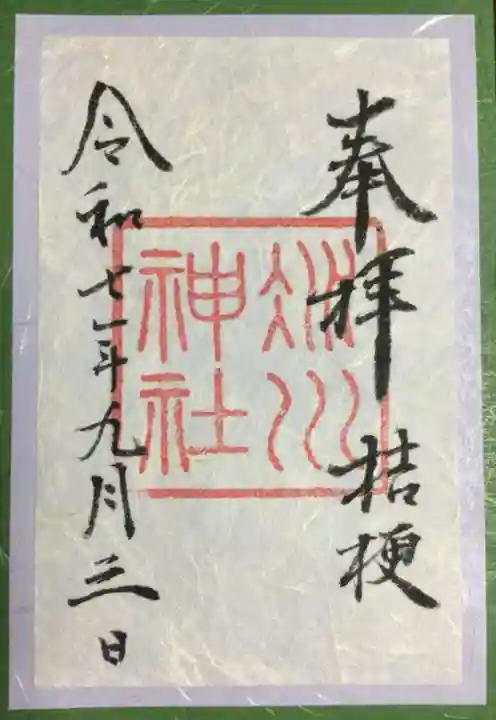 奉拝 桔梗
川
神社
令和七年九月三日